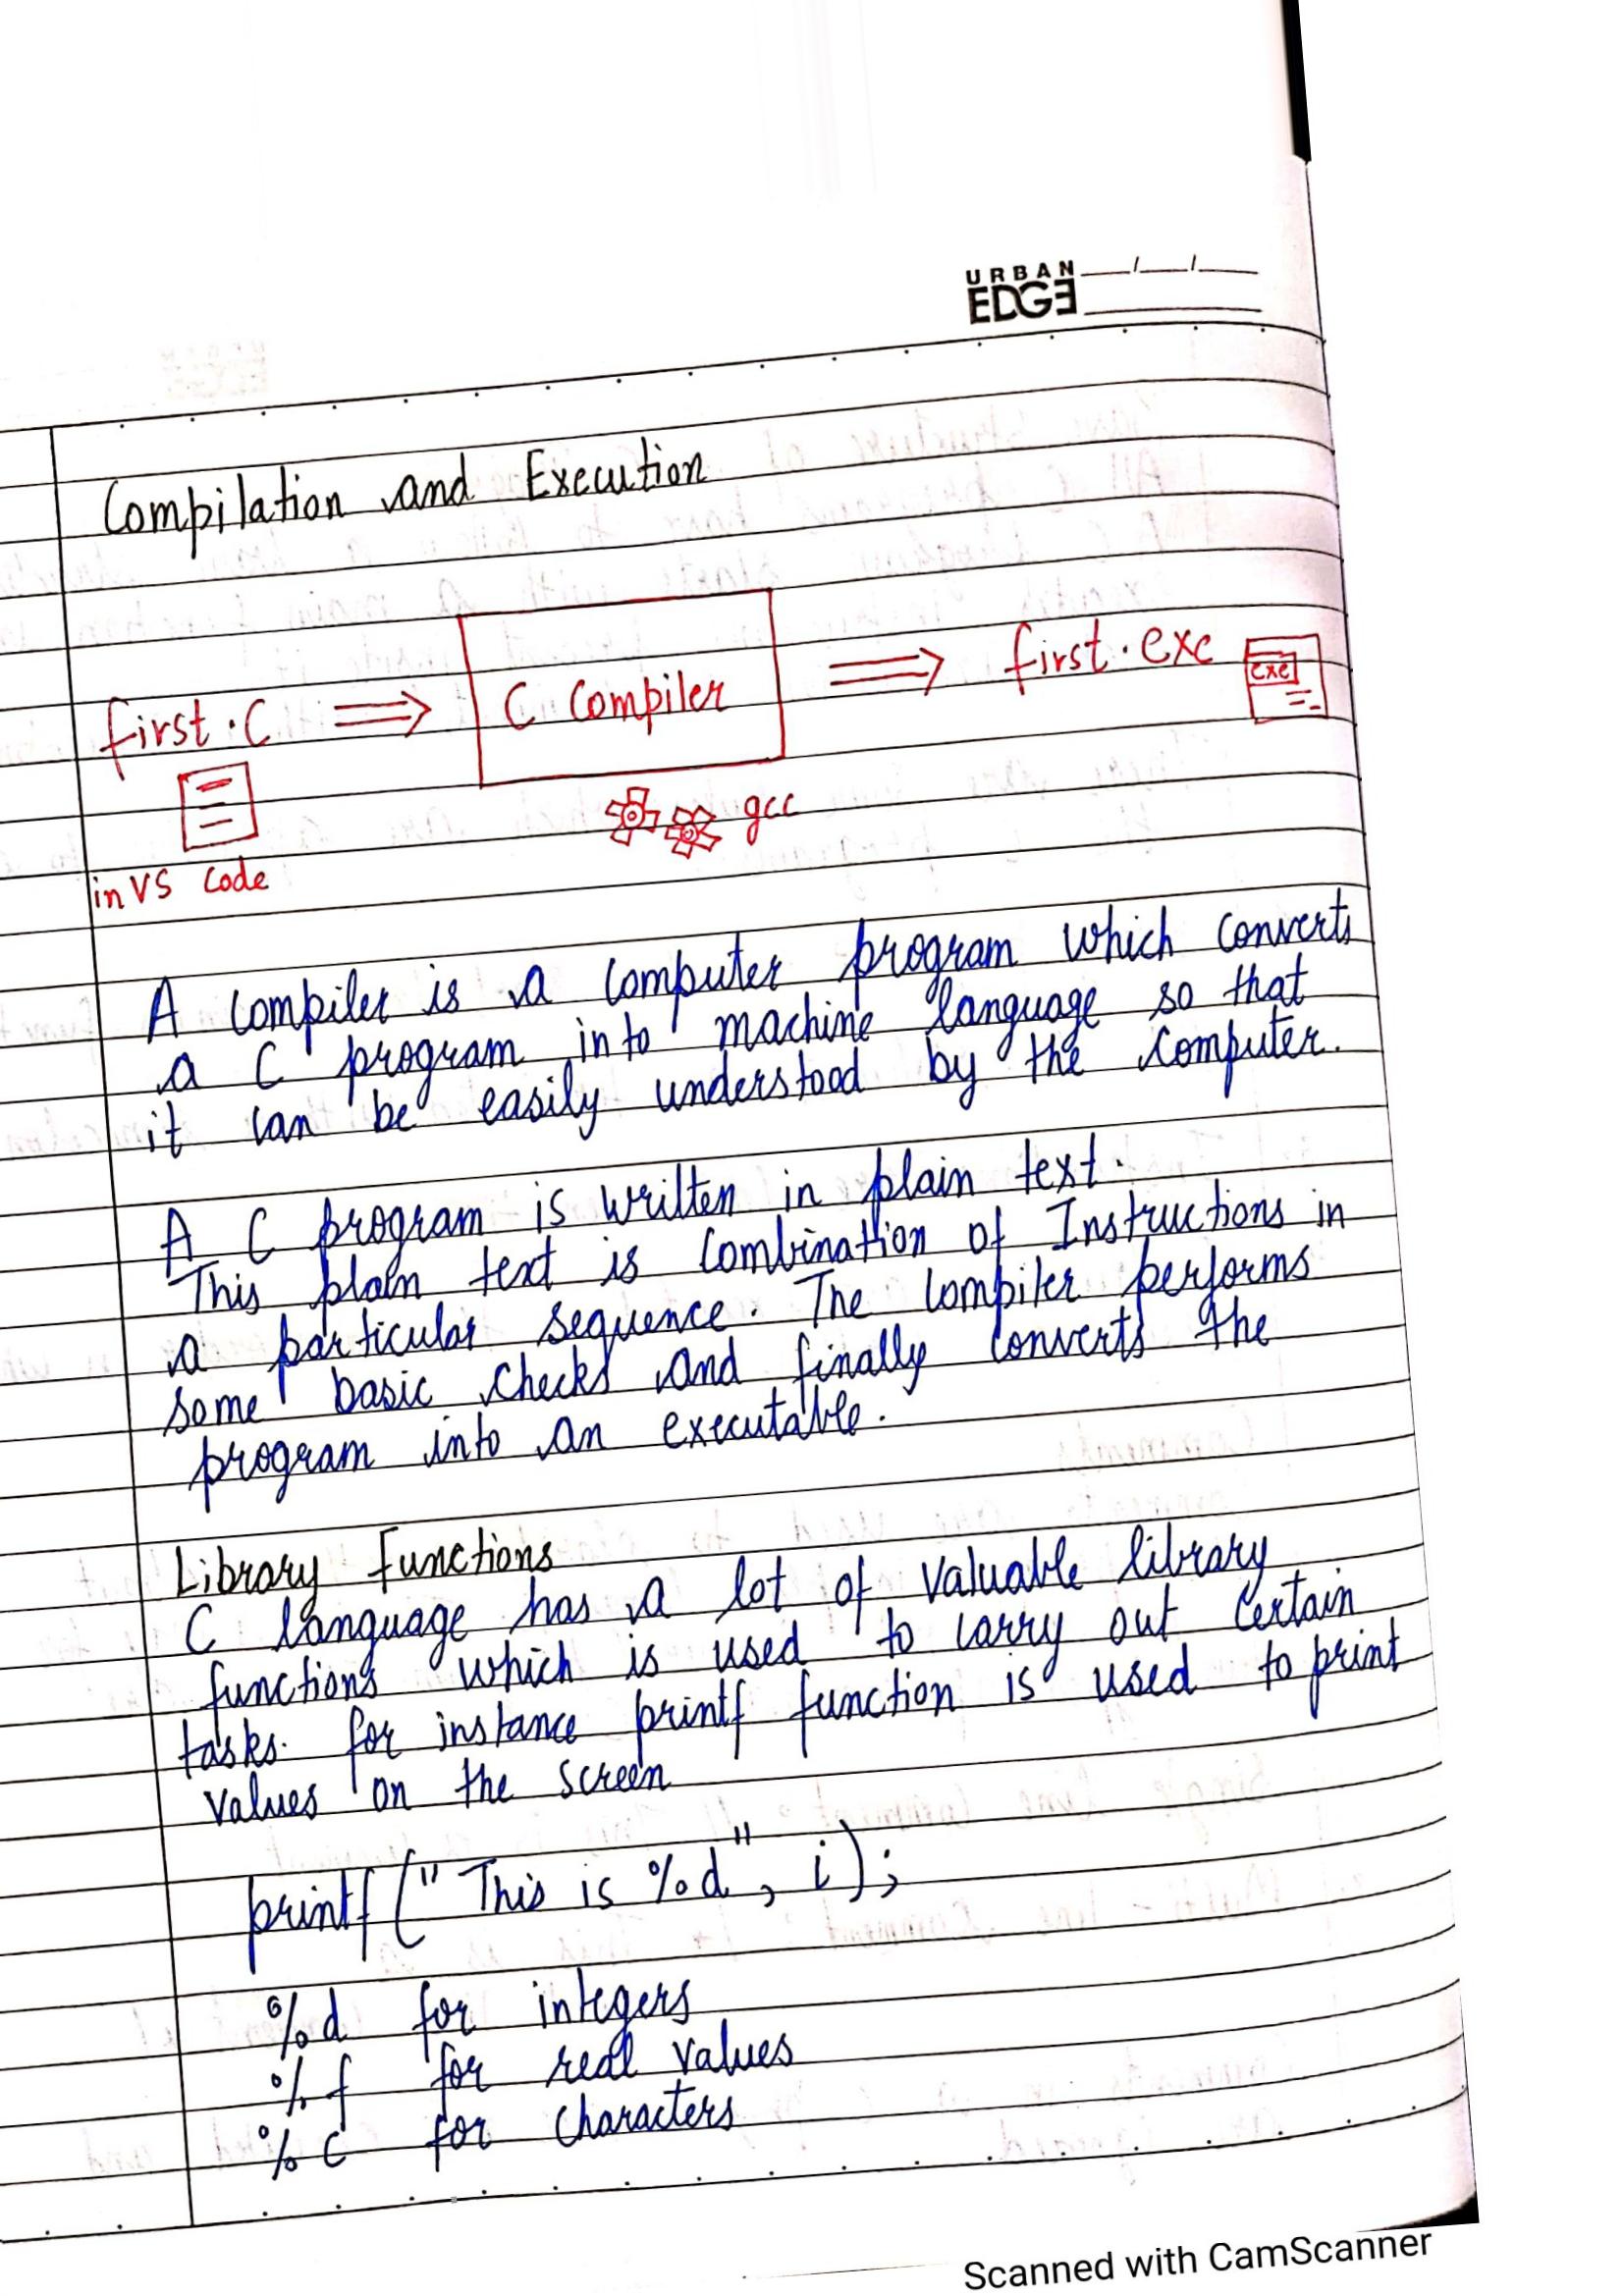 URBAN
EDGE
Compilation and Execution
first.C ⟹ C Compiler ⟹ first.exe
exe
gcc
in VS Code
A compiler is a computer program which converts
a C program into machine language so that
it can be easily understood by the computer.
A C program is written in plain text.
This plain text is combination of Instructions in
a particular sequence. The compiler performs
some basic checks and finally converts the
program into an executable.
Library Functions
C language has a lot of valuable library
functions which is used to carry out certain
tasks. for instance printf function is used to print
values on the screen
printf ("This is %d", i);
%d for integers
%f for real values
%c for characters
Scanned with CamScanner